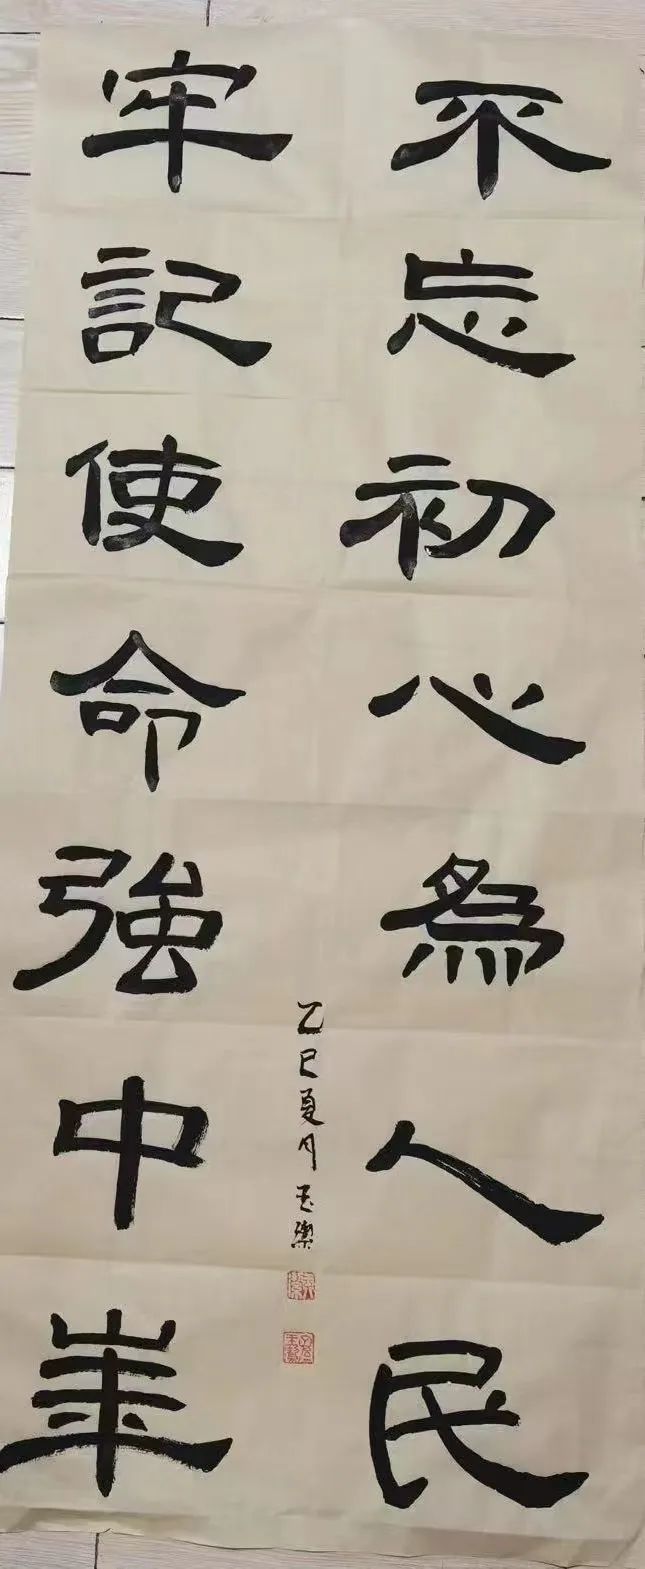 不忘初心為人民
牢記使命強中華
乙巳夏月玉樂